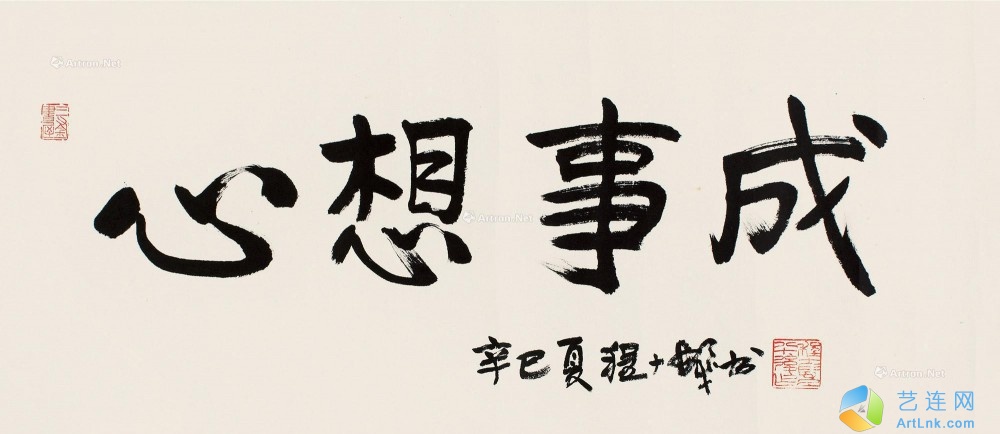 Artron.Net
心想事成
Artron.Net
辛巳夏程十发书
Artron.Net
艺连网
ArtLnk.com